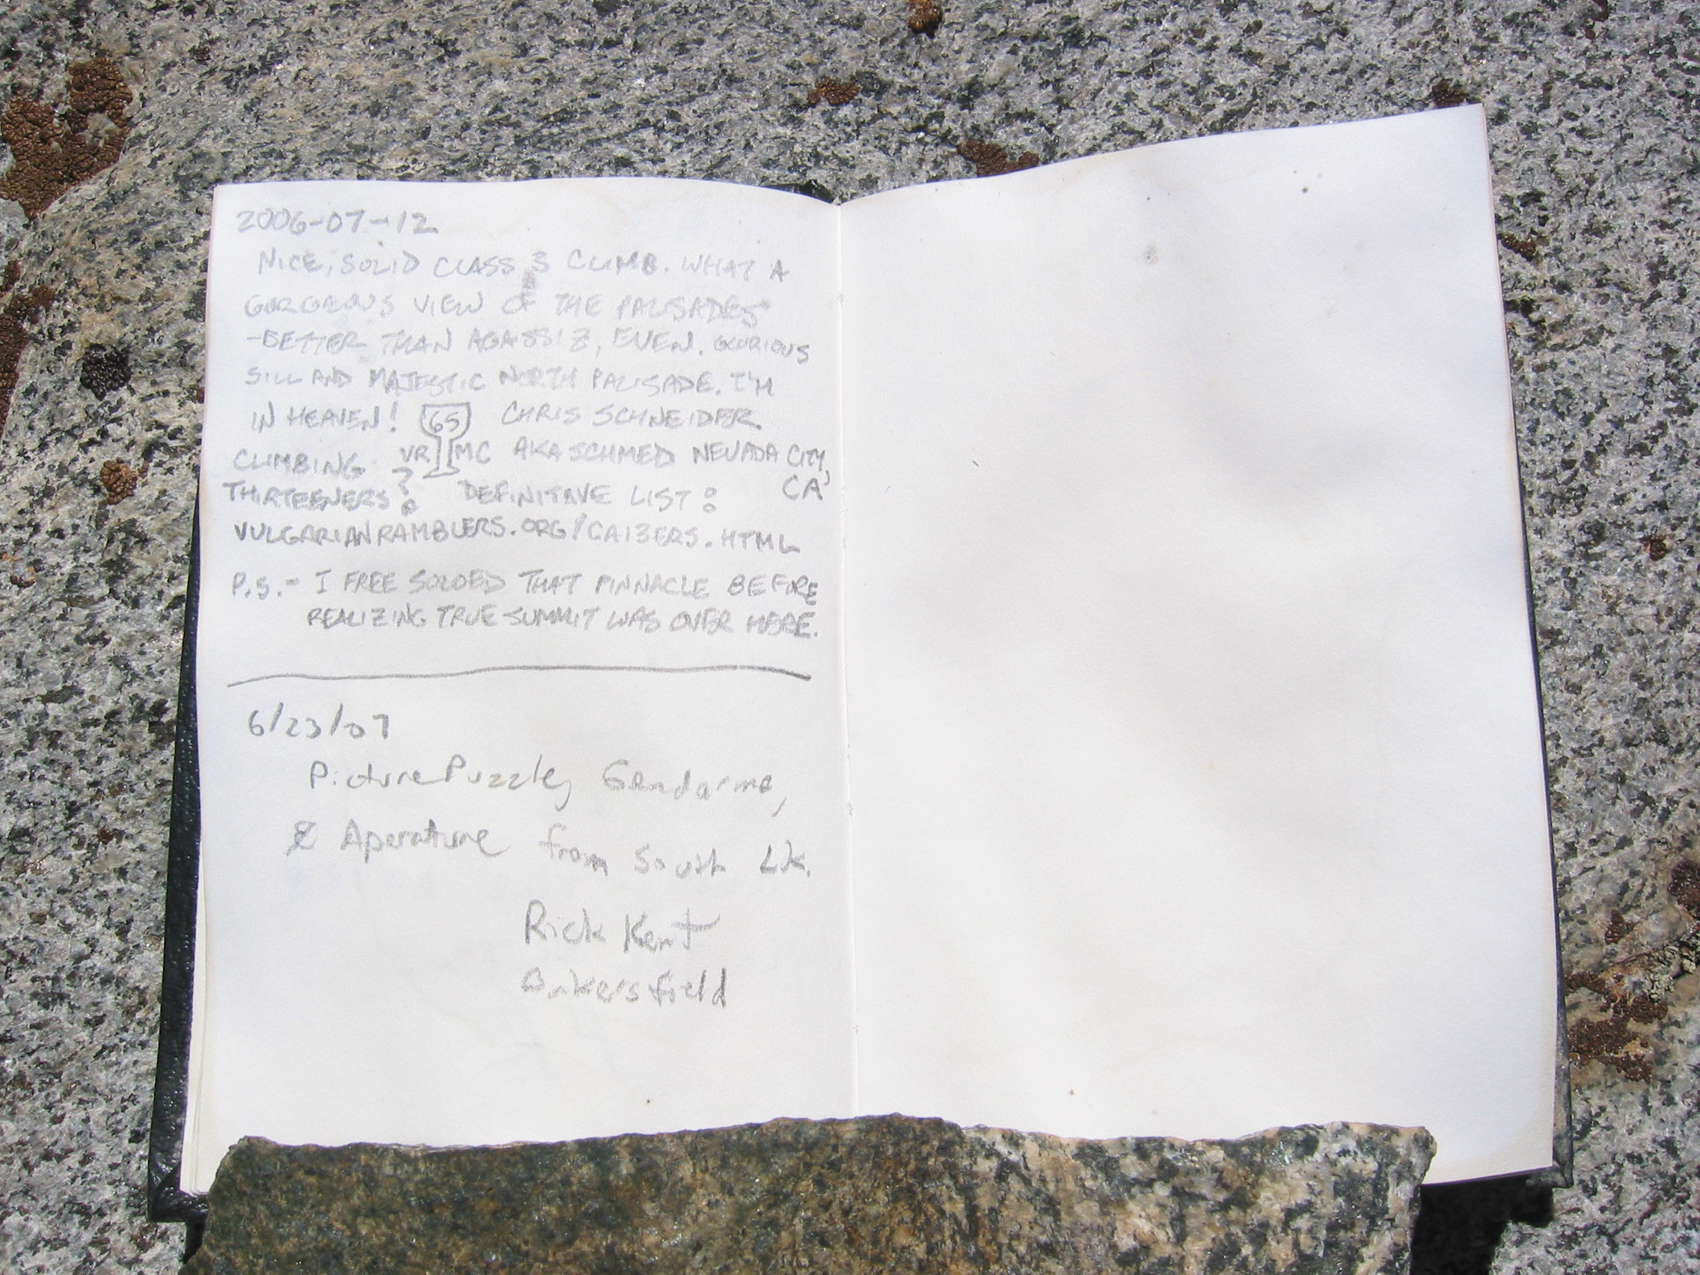 2006-07-12
NICE, SOLID CLASS 3 CLIMB. WHAT A
GORGEOUS VIEW OF THE PALISADES
-BETTER THAN AGASSIZ, EVEN. GLORIOUS
SILL AND MAJESTIC NORTH PALISADE. I'M
IN HEAVEN! 65 CHRIS SCHNEIDER
CLIMBING VR MC AKA SCHMED NEVADA CITY,
THIRTEENERS? DEFINITIVE LIST: CA
VULGARIANRAMBLERS.ORG/CA13ERS.HTML
P.S.- I FREE SOLOED THAT PINNACLE BEFORE
REALIZING TRUE SUMMIT WAS OVER HERE.
6/23/07
Picture Puzzle, Gendarme,
& Aperature from South Lk.
Rick Kent
Bakersfield